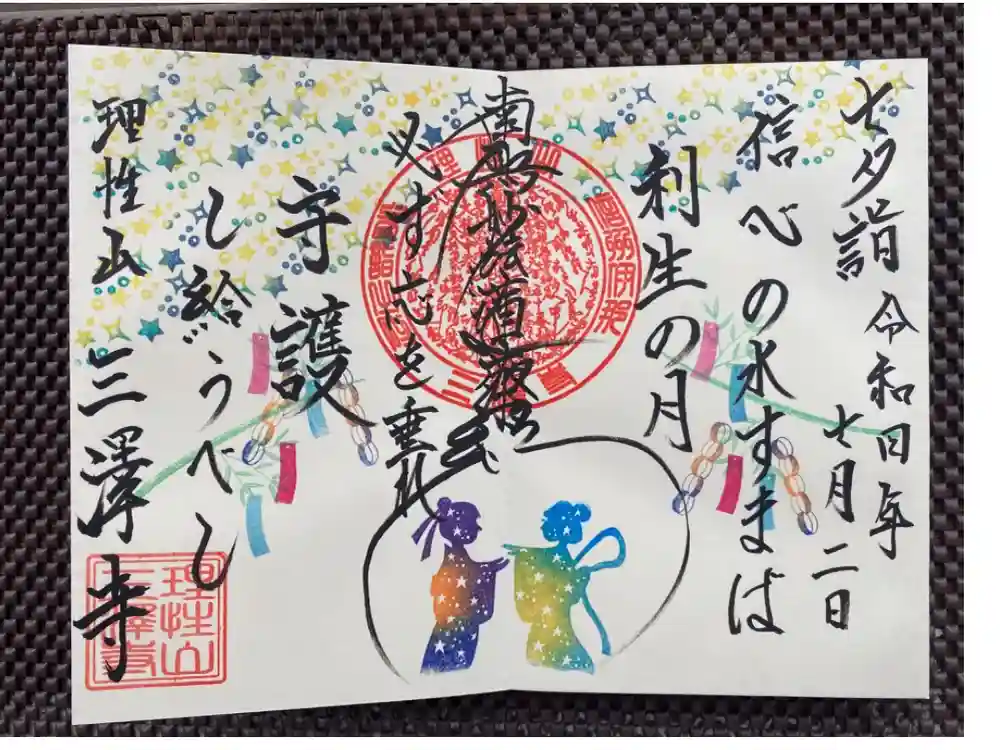 七夕詣
令和四年
七月二日
信心の水すまば
利生の月
南無妙法蓮華経
必ず応を垂れ
守護
し給うべし
理性山
三澤寺
理性山
三澤寺